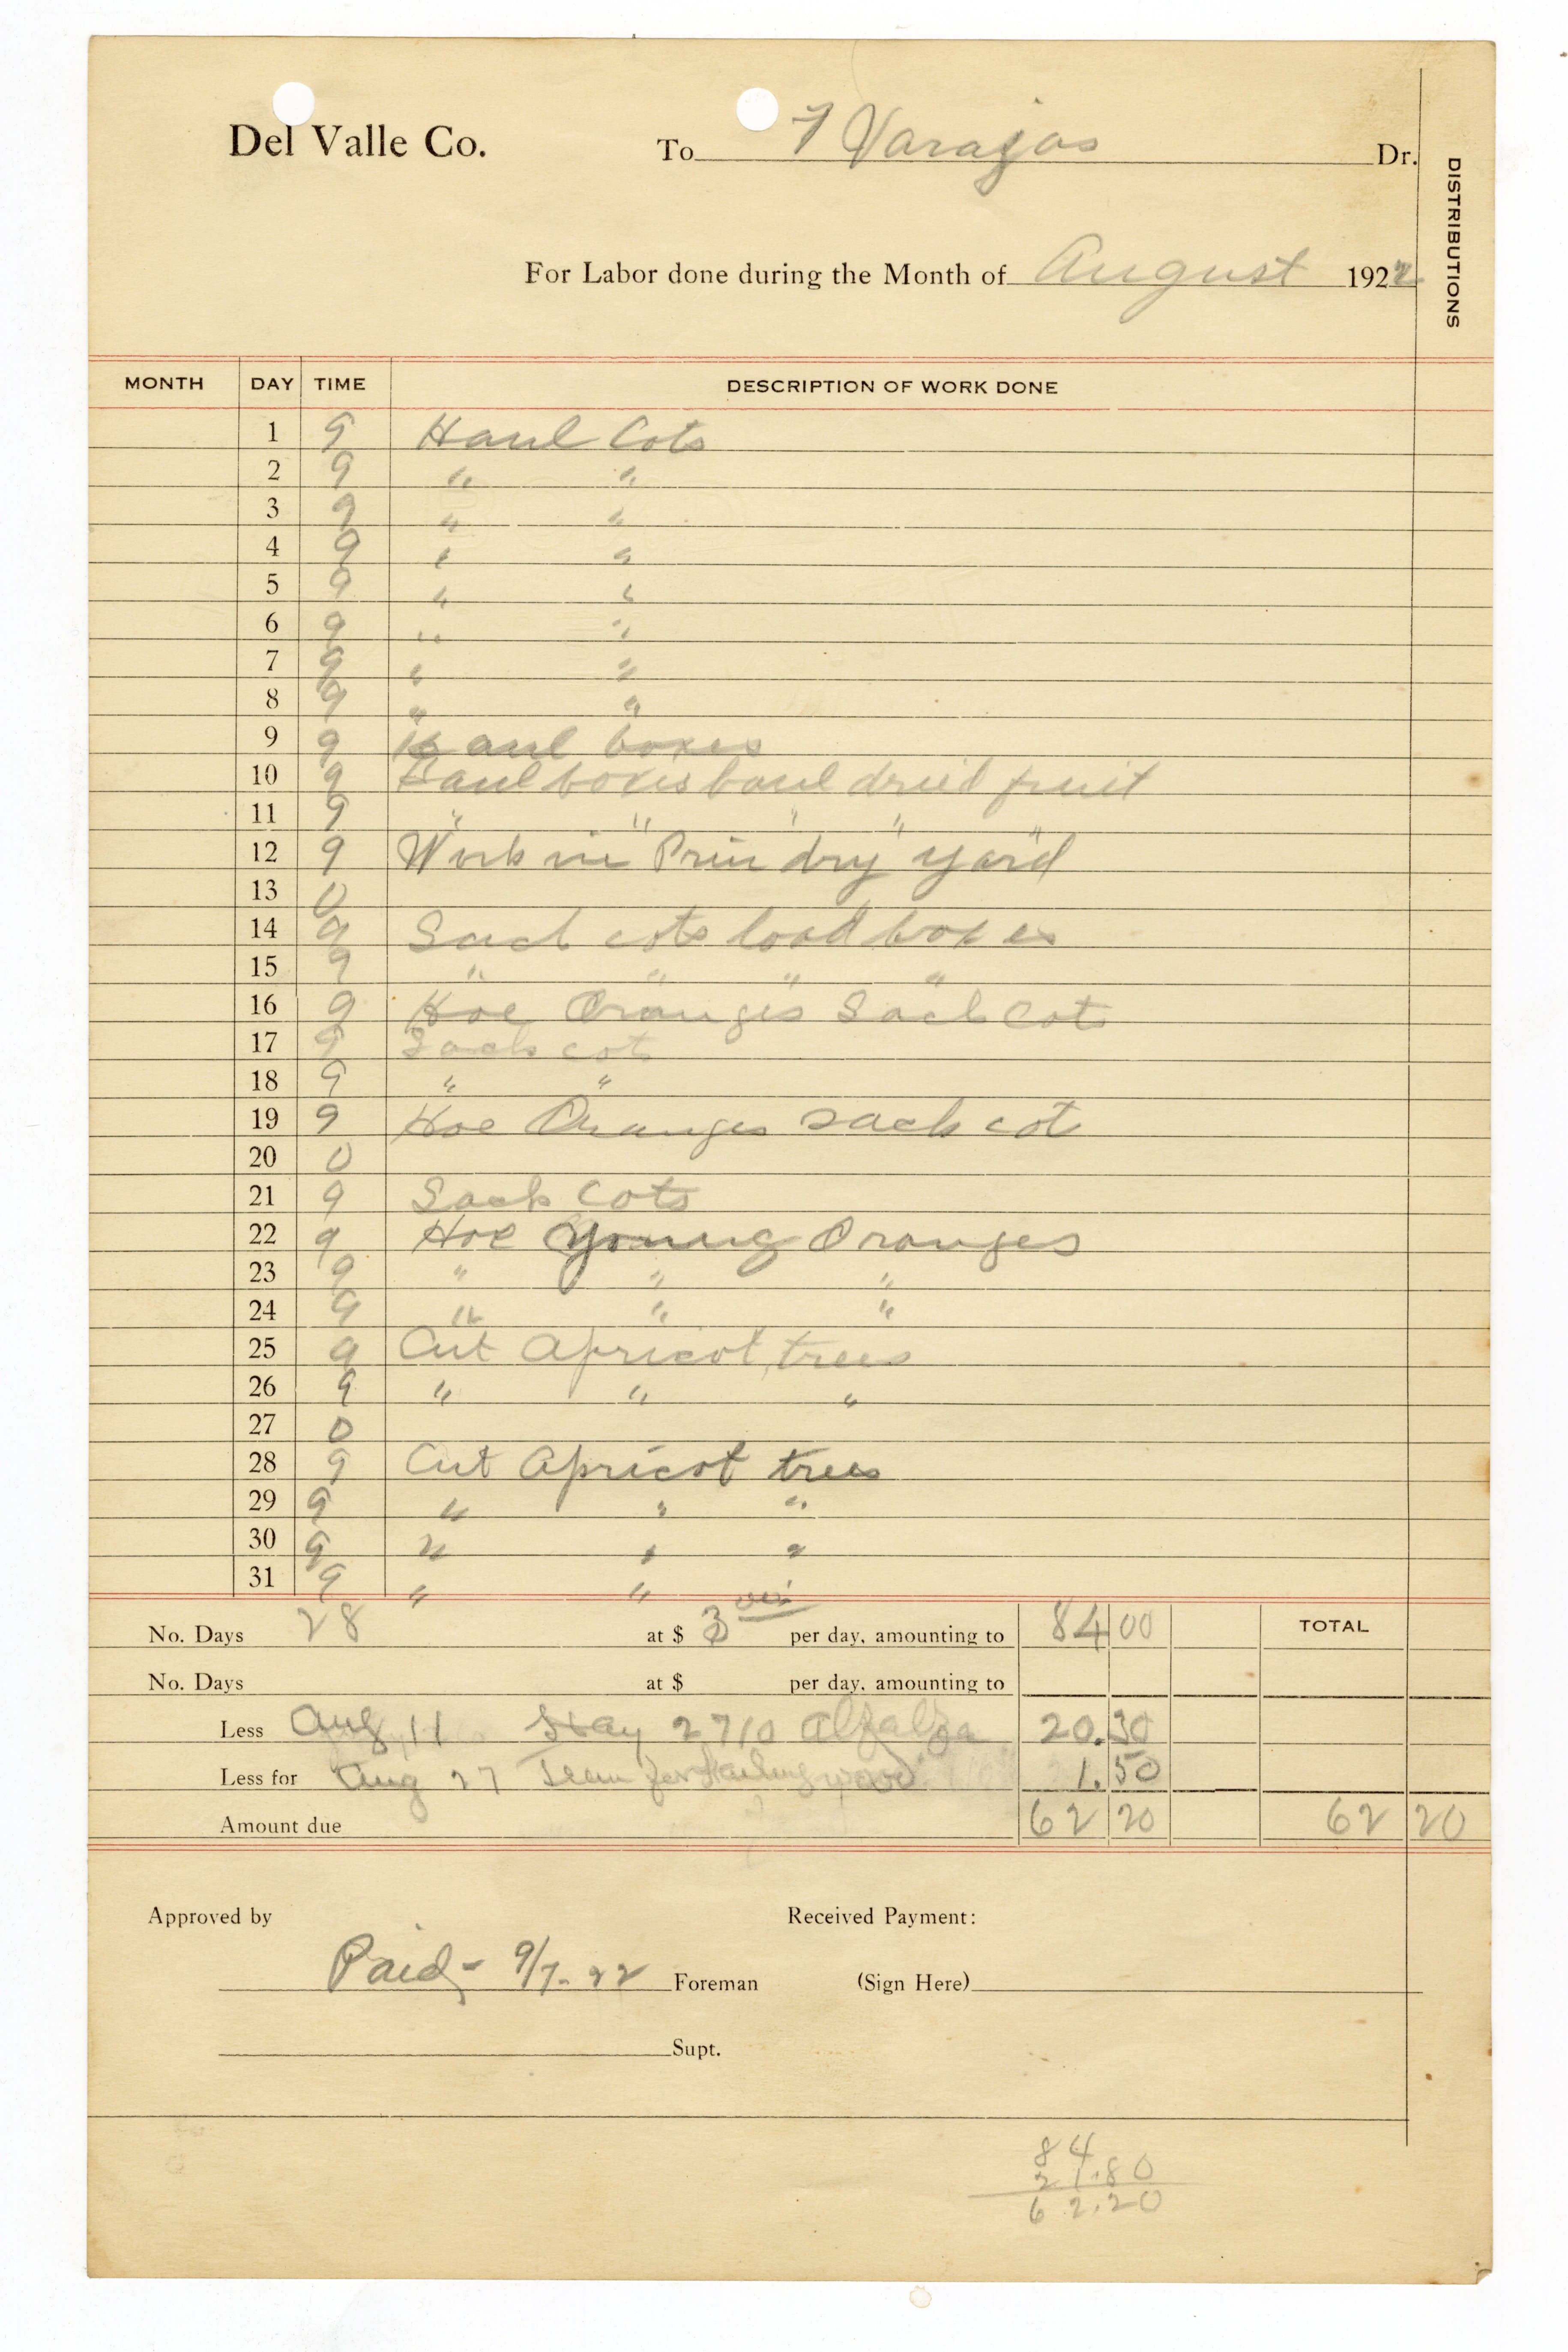 Del Valle Co. To F Varajas Dr.
DISTRIBUTIONS
For Labor done during the Month of August 1922
MONTH DAY TIME DESCRIPTION OF WORK DONE
1 9 Haul Cots
2 9 " "
3 9 " "
4 9 " "
5 9 " "
6 9 " "
7 9 " "
8 9 " "
9 9 Haul boxes
10 9 Haul boxes haul dried fruit
11 9 " " " " "
12 9 Work in dry yard
13 0
14 9 Sack cots load boxes
15 9 " " " "
16 9 Hoe Oranges Sack Cots
17 9 Sack cot
18 9 " "
19 9 Hoe Oranges sack cot
20 0
21 9 Sack Cots
22 9 Hoe Young Oranges
23 9 " " "
24 9 " " "
25 9 Cut Apricot trees
26 9 " " "
27 0
28 9 Cut Apricot trees
29 9 " " "
30 9 " " "
31 9 " " "
No. Days 28 at $ 3 per day, amounting to 84 00 TOTAL
No. Days at $ per day, amounting to
Less Aug 11 Hay 2710 alfalfa 20.30
Less for Aug 27 Team for Hauling wood 1.50
Amount due 62 20 62 20
Approved by Received Payment:
Paid - 9/7-22 Foreman (Sign Here)
Supt.
84
21.80
62.20